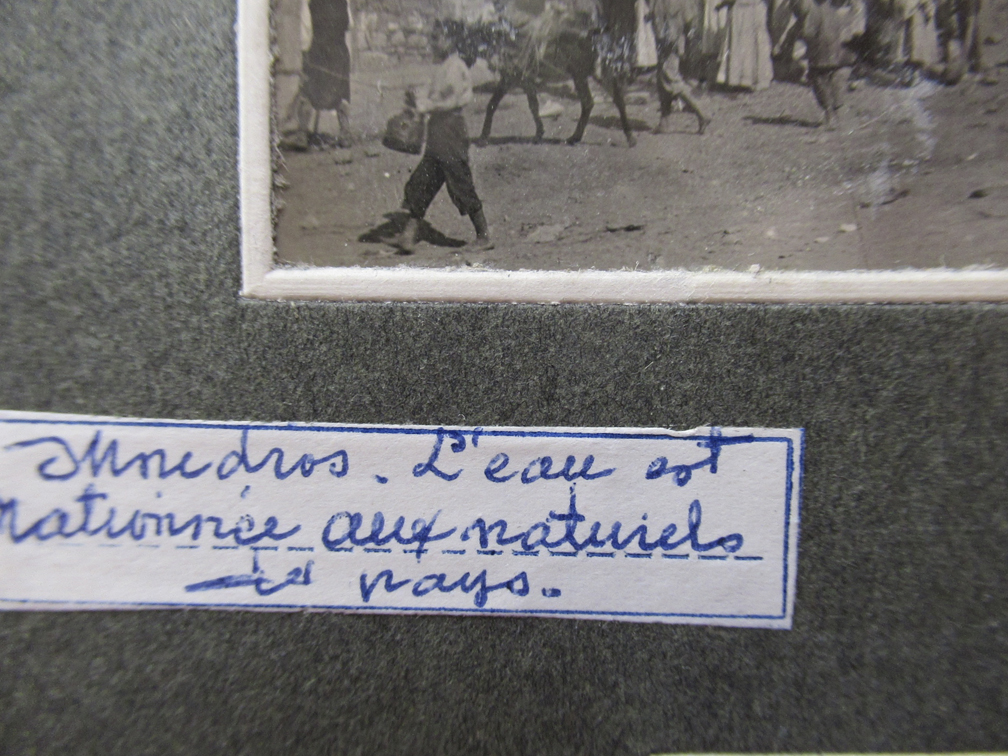 Moudros. L'eau est
rationnée aux naturels
pays.